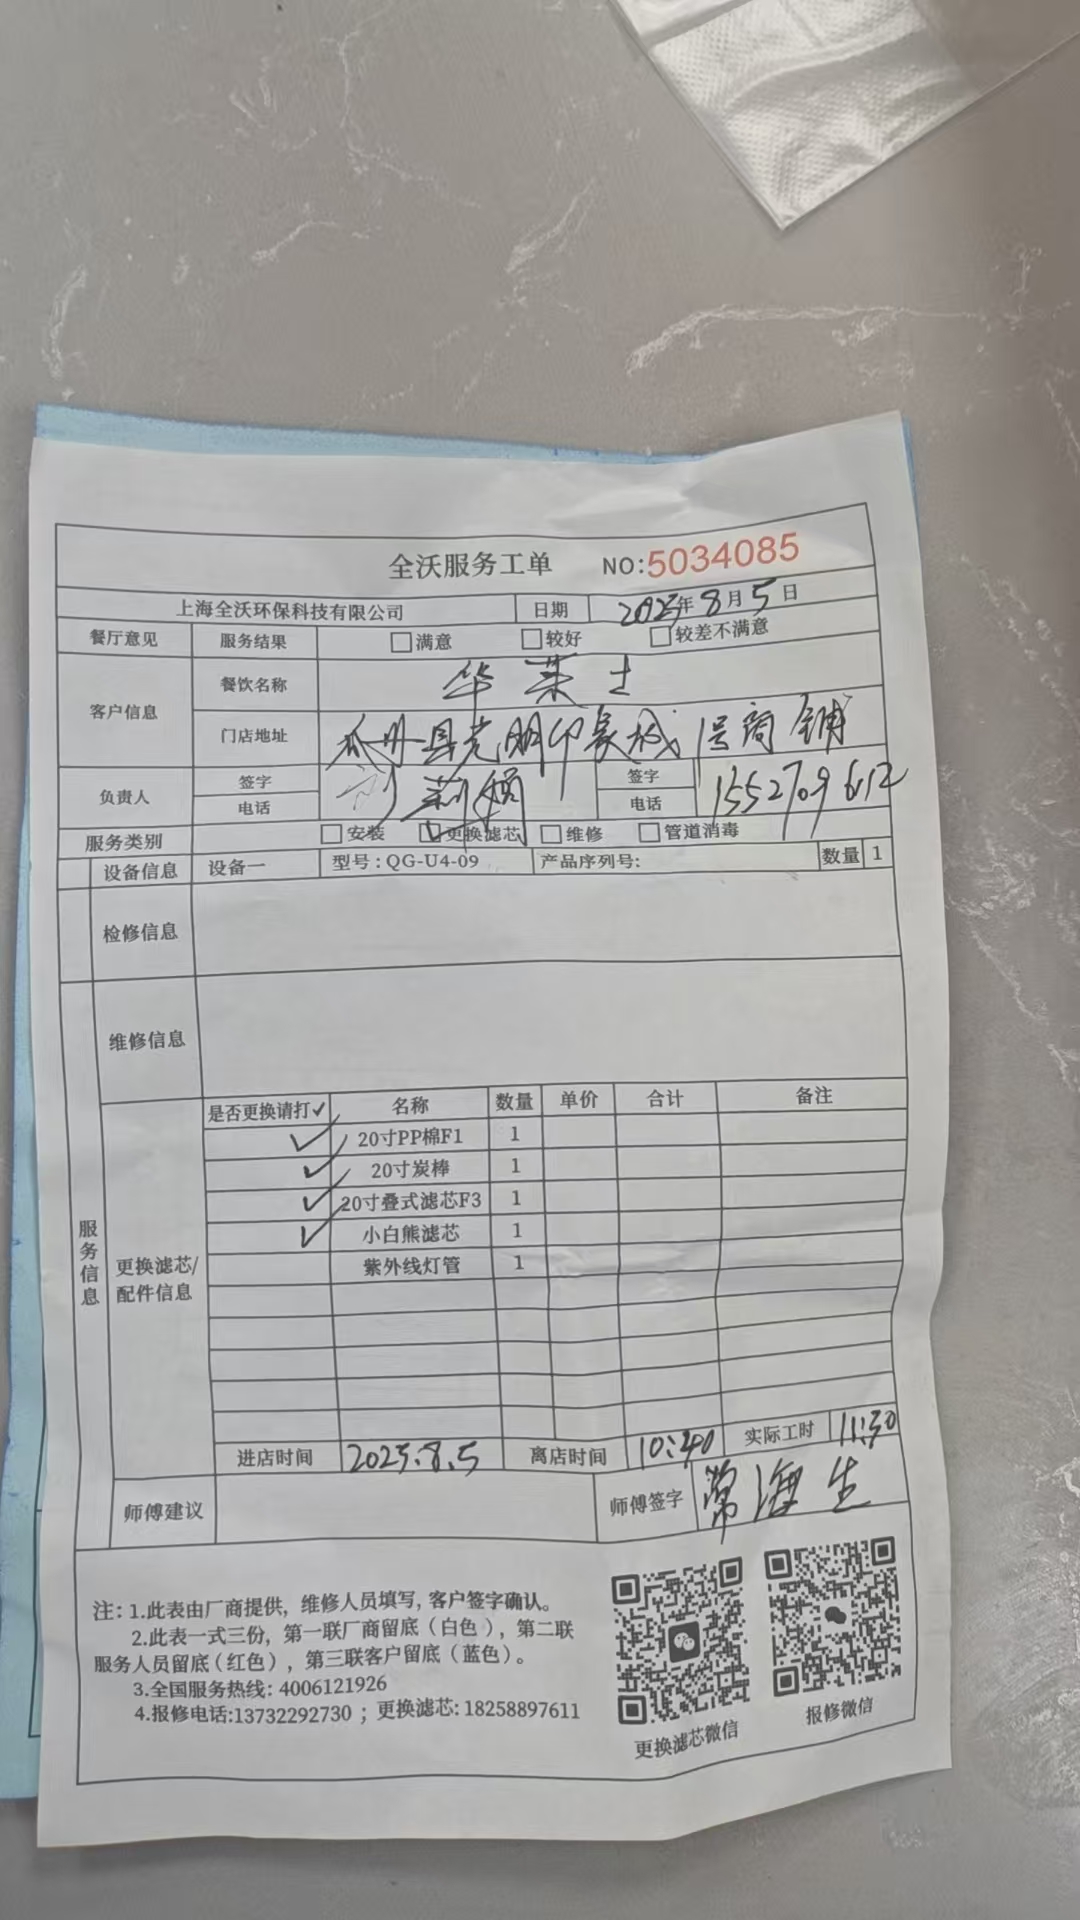 全沃服务工单 NO:5034085
上海全沃环保科技有限公司 日期 2025年8月5日
餐厅意见 服务结果 满意 较好 较差不满意
客户信息 餐饮名称 华莱士
门店地址 瓜州县光明印象城 1号商铺
负责人 签字 电话 签字 电话 15527096612
服务类别 安装 更换滤芯 维修 管道消毒
设备信息 设备一 型号:QG-U4-09 产品序列号: 数量 1
检修信息
维修信息
服务信息
更换滤芯/配件信息
是否更换请打✓ 名称 数量 单价 合计 备注
✓ 20寸PP棉F1 1
✓ 20寸炭棒 1
✓ 20寸叠式滤芯F3 1
✓ 小白熊滤芯 1
紫外线灯管 1
进店时间 2025.8.5 离店时间 10:40 实际工时 11:30
师傅建议 师傅签字 常海生
注: 1.此表由厂商提供, 维修人员填写, 客户签字确认。
2.此表一式三份, 第一联厂商留底 (白色), 第二联
服务人员留底 (红色), 第三联客户留底 (蓝色)。
3.全国服务热线: 4006121926
4.报修电话:13732292730 ; 更换滤芯: 18258897611
更换滤芯微信 报修微信